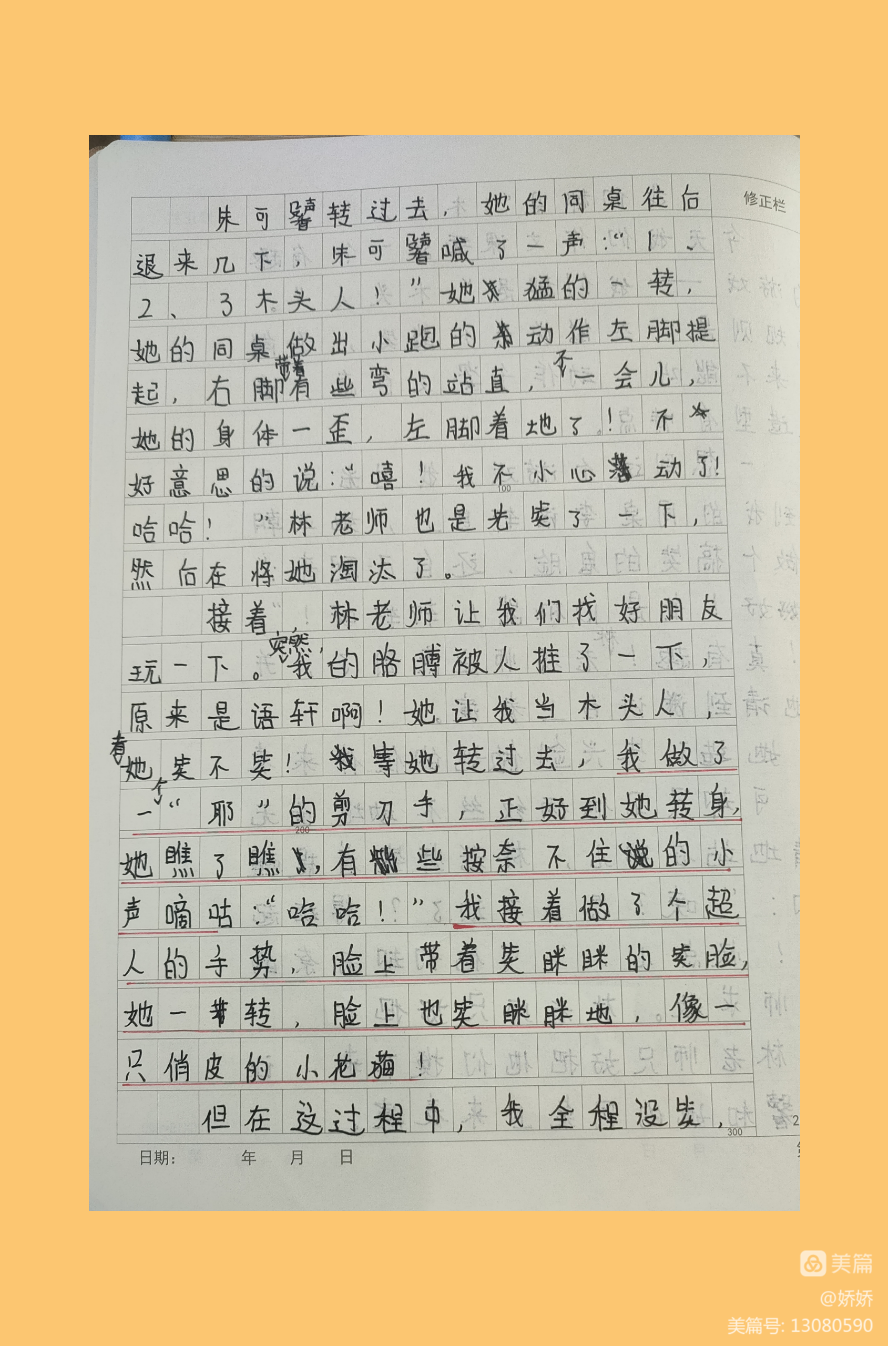 修正栏
朱可馨转过去，她的同桌往后
退来几下，朱可馨喊了一声：“1、
2、3木头人！”她猛的一转，
她的同桌做出小跑的动作左脚提
起，右脚带着有些弯的站直，不一会儿，
她的身体一歪，左脚着地了！不
好意思的说：“嘻！我不小心动了！
哈哈！”林老师也是先笑了一下，
100
然后在将她淘汰了。
接着，林老师让我们找好朋友
玩一下。突然，我的胳膊被人推了一下，
原来是语轩啊！她让我当木头人，
看她笑不笑！我等她转过去，我做了
一个“耶”的剪刀手，正好到她转身，
200
她瞧了瞧，有些按奈不住的小
声嘀咕：“哈哈！”我接着做了个超
人的手势，脸上带着笑眯眯的笑脸，
她一转，脸上也笑眯眯地，像一
只俏皮的小花猫！
但在这过程中，我全程没笑，
300
日期： 年 月 日
美篇
@娇娇
美篇号: 13080590